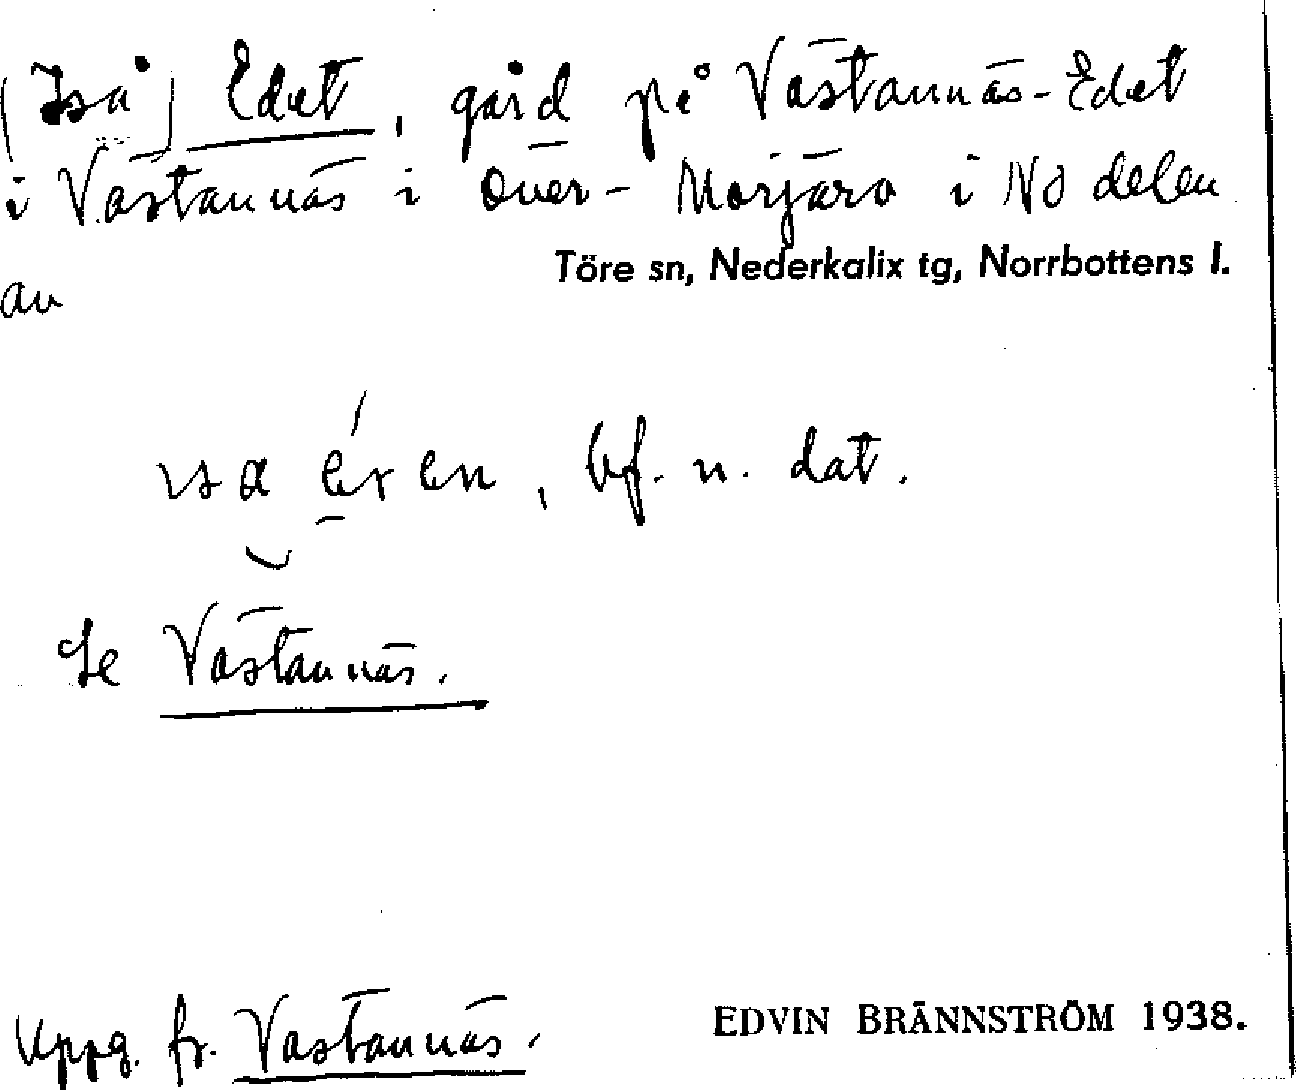 (Iså) Edet, gård på Västannäs-Edet
i Västannäs i Över-Morjärv i NO delen
av Töre sn, Nederkalix tg, Norrbottens l.
bf. n. dat.
Se Västannäs.
Uppg. fr. Västannäs.
EDVIN BRÄNNSTRÖM 1938.